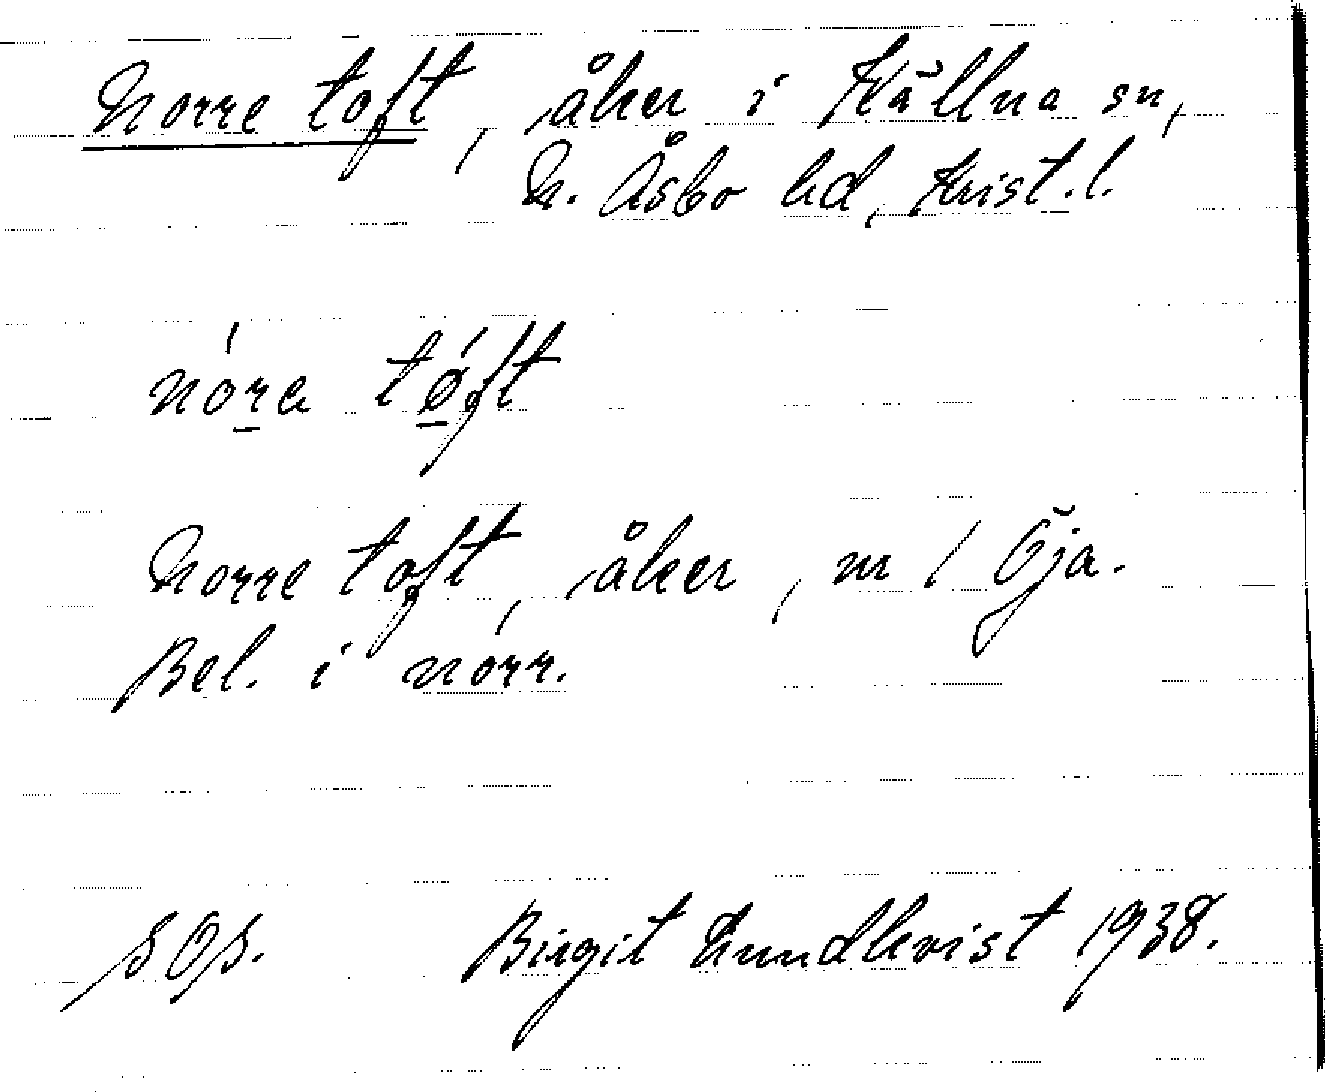 Norre toft, åker i Källna sn,
N. Åsbo hd, Krist. l.
nóra tǿft
Norre toft, åker, nr 1 Öja.
Bel. i norr.
SOS. Birgit Lundkvist 1938.